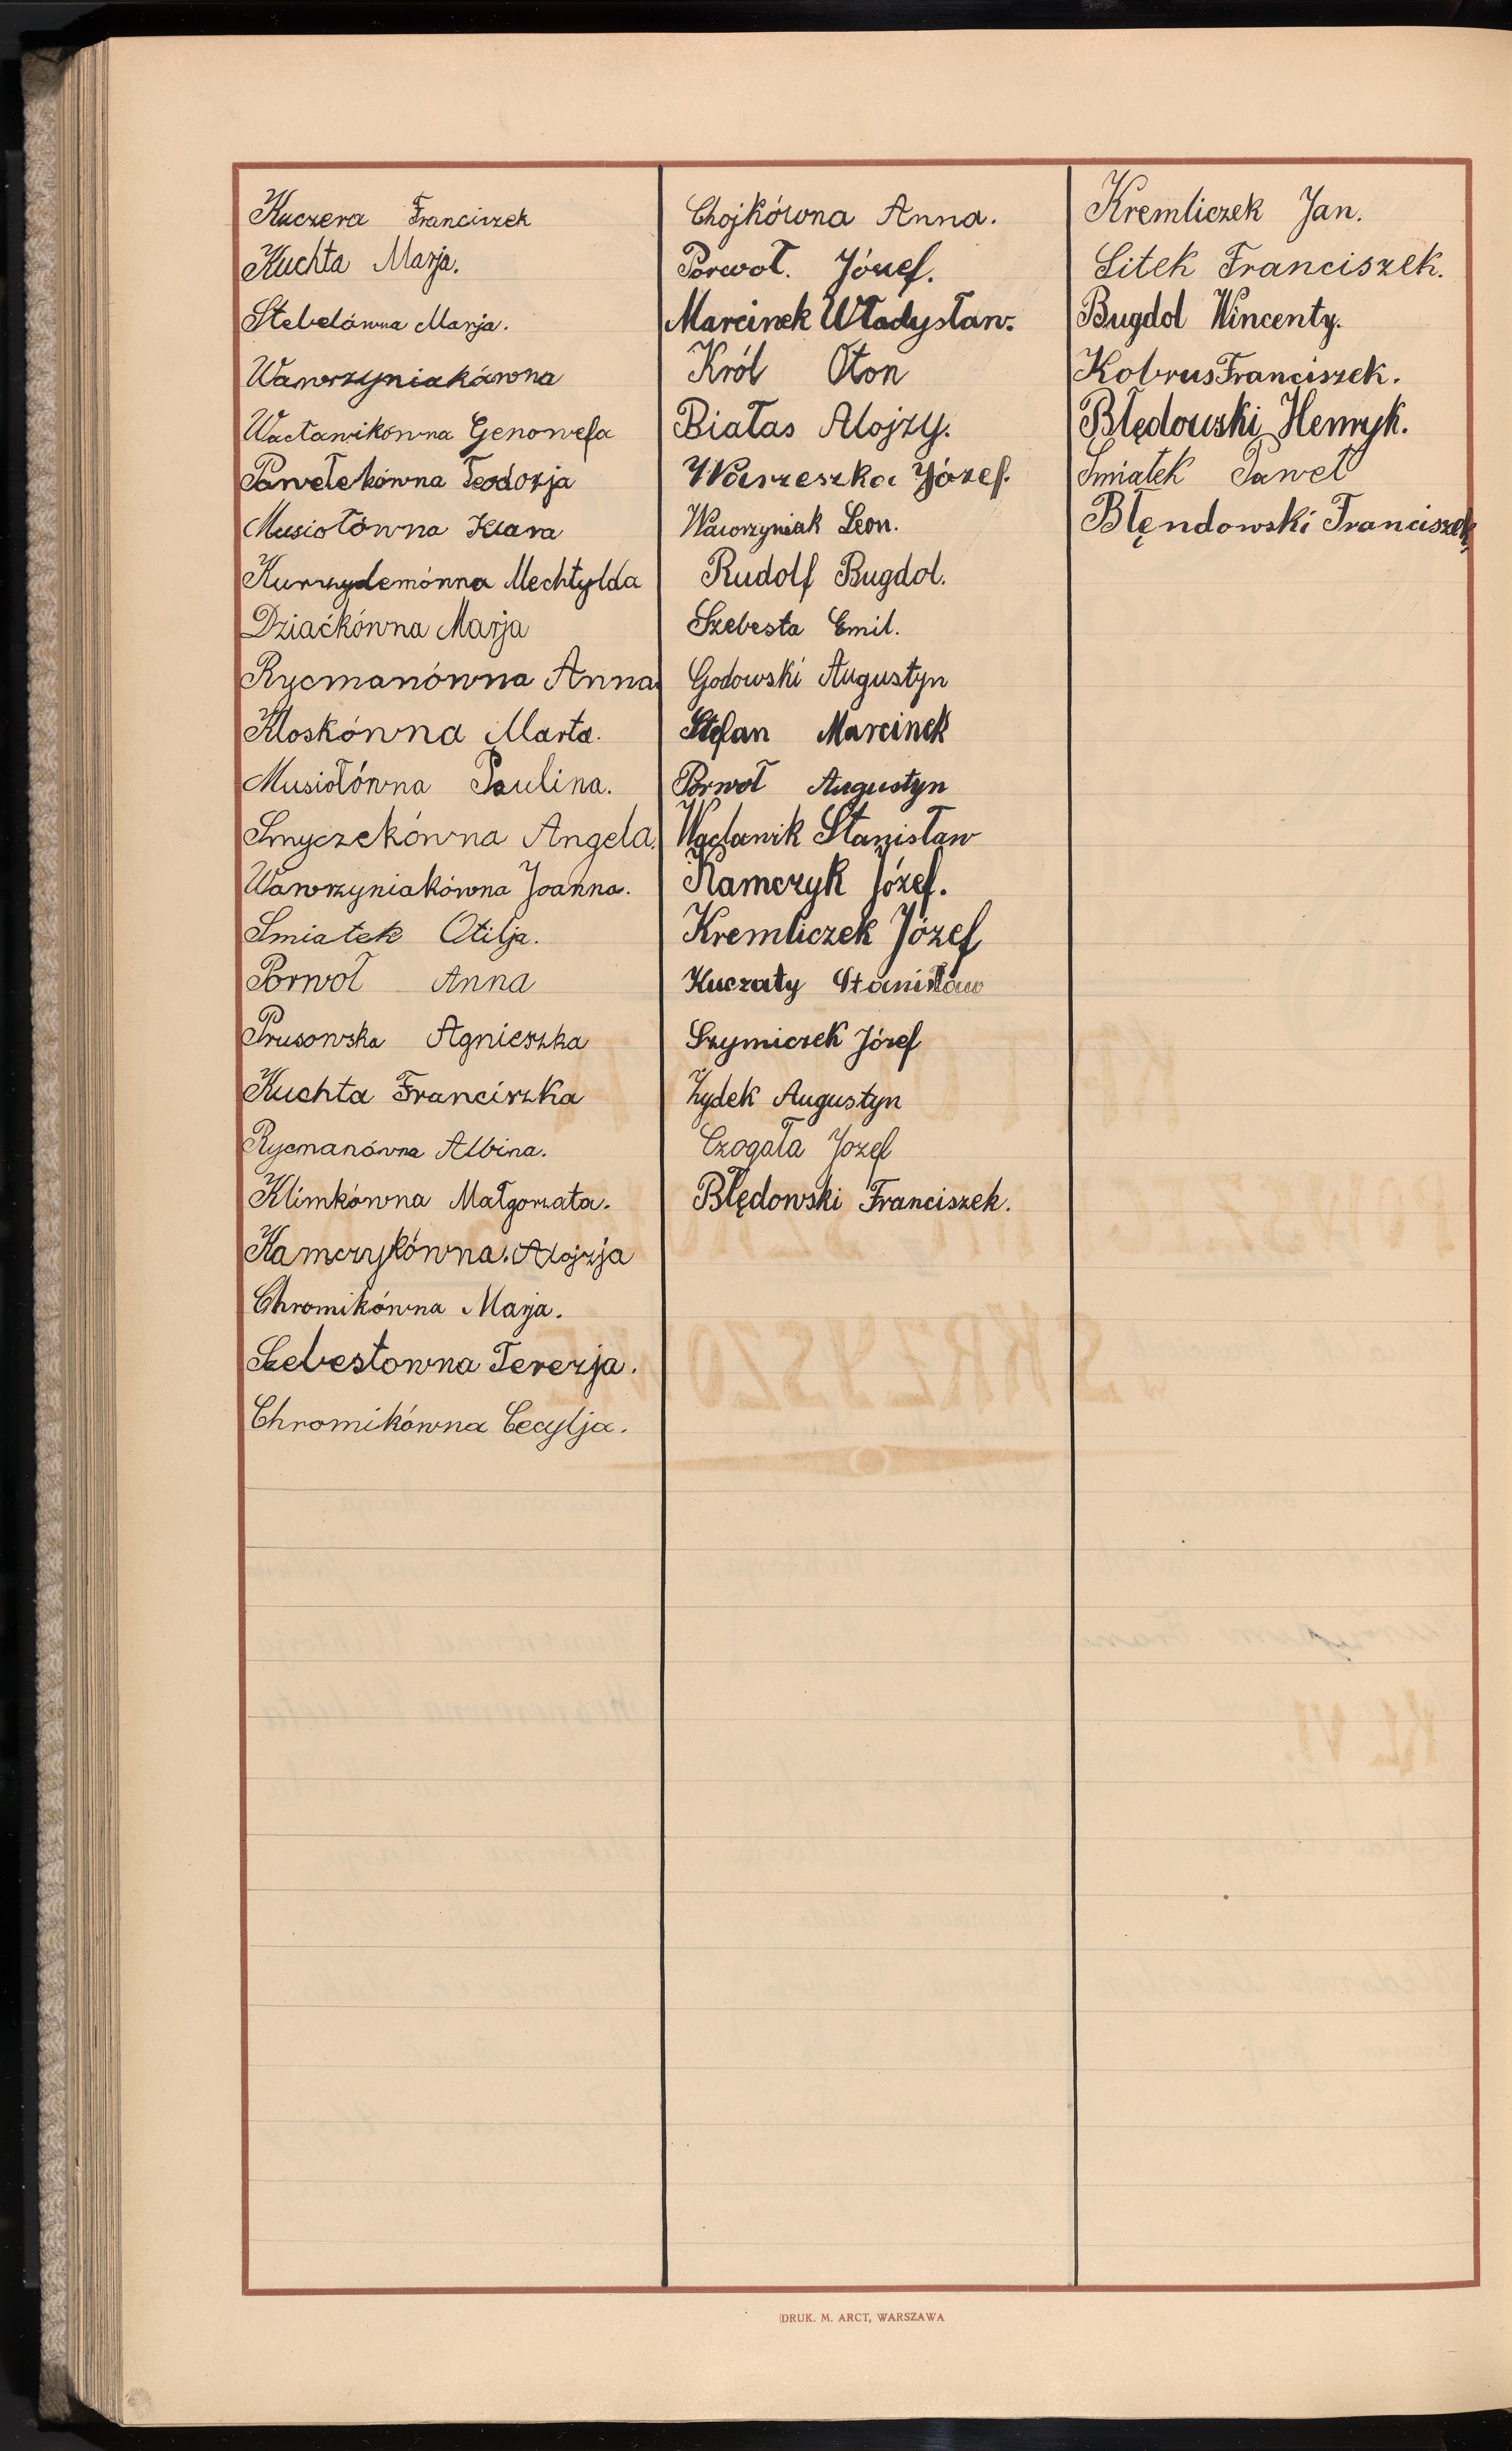 Kuczera Franciszek
Kuchta Marja.
Stebelówna Marja.
Wawrzyniakówna
Wacławikówna Genowefa
Pawełekówna Teodozja
Musiołówna Klara
Kurzydemówna Mechtylda
Dziaćkówna Marja
Rycmanówna Anna
Kloskówna Marta.
Musiołówna Paulina.
Smyczekówna Angela.
Wawrzyniakówna Joanna.
Smiatek Otilja.
Porwoł Anna
Prusowska Agnieszka
Kuchta Franciszka
Rycmanówna Albina.
Klimkówna Małgorzata.
Kamczykówna. Alojzja
Chromikówna Marja.
Szebestowna Terezja.
Chromikówna Cecylja.
Chojkówna Anna.
Porwoł. Józef.
Marcinek Władysław.
Król Oton
Białas Alojzy.
Warzeszka Józef.
Wawrzyniak Leon.
Rudolf Bugdol.
Szebesta Emil.
Godowski Augustyn
Stefan Marcinek
Porwoł Augustyn
Wacławik Stanisław
Kamczyk Józef.
Kremliczek Józef
Kuczaty Stanisław
Szymiczek Józef
Żydek Augustyn
Czogała Jozef
Błędowski Franciszek.
Kremliczek Jan.
Sitek Franciszek.
Bugdol Wincenty.
Kobrus Franciszek.
Błędowski Henryk.
Smiatek Paweł
Błendowski Franciszek
DRUK. M. ARCT, WARSZAWA